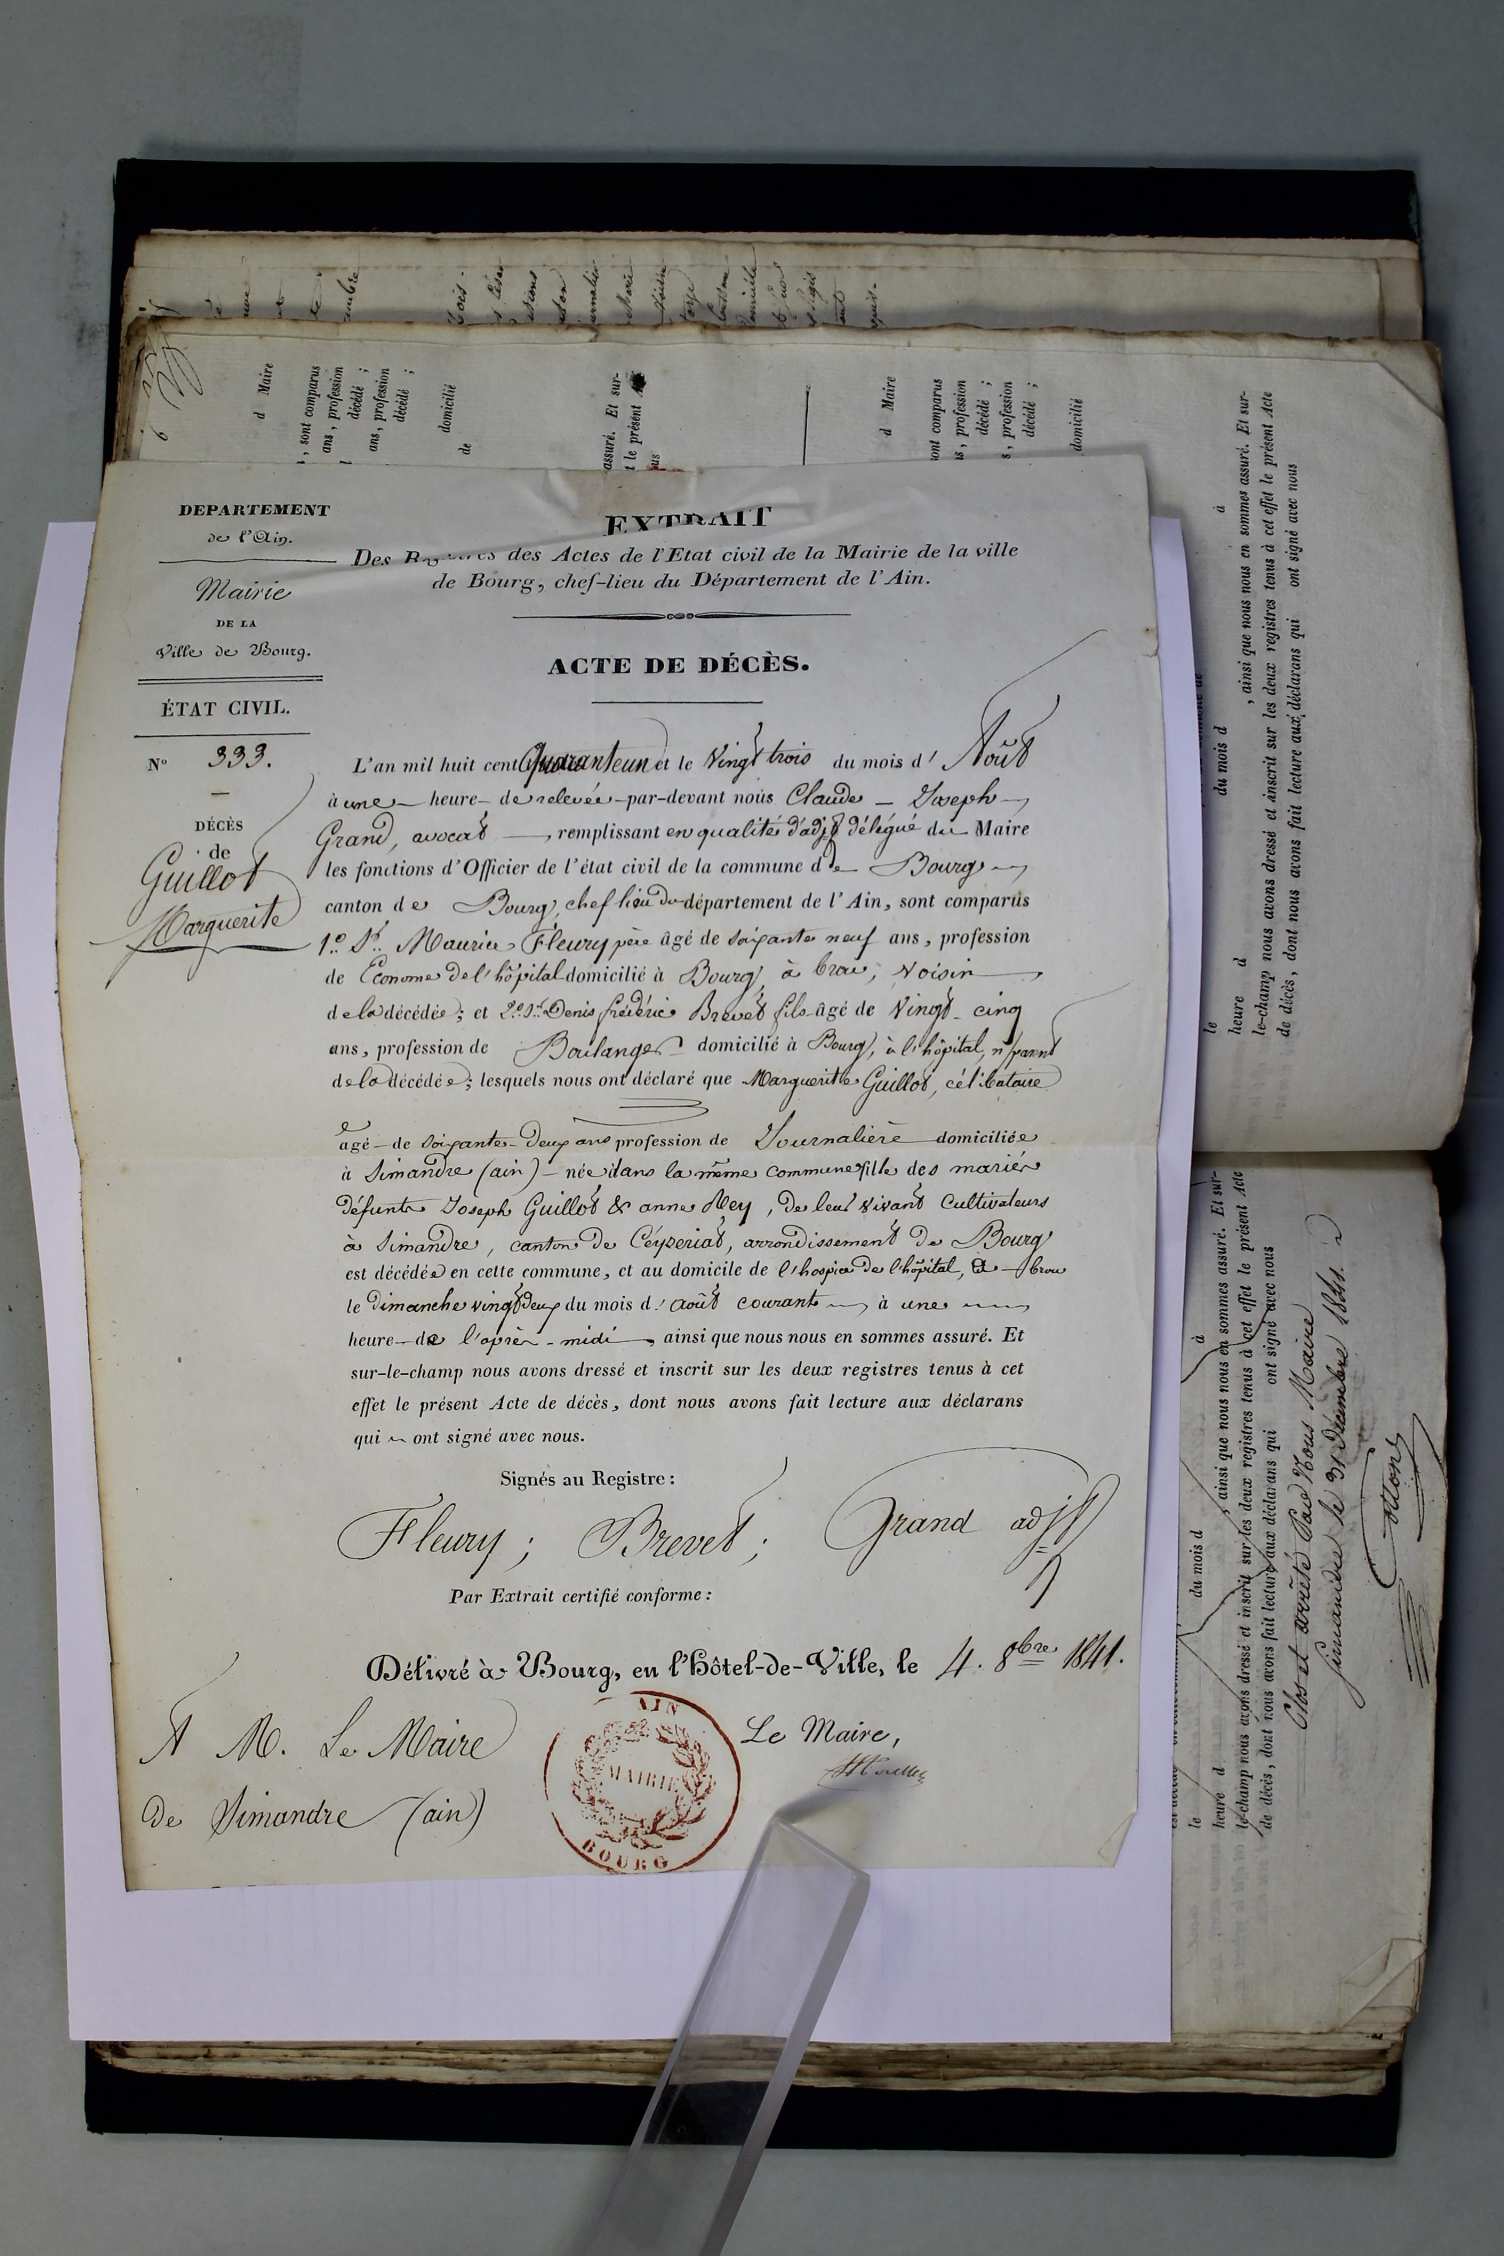 DEPARTEMENT
de l'Ain.
Mairie
DE LA
Ville de Bourg.
ÉTAT CIVIL.
No 333.
DÉCÈS
de
Guillot
Marguerite
EXTRAIT
Des Registres des Actes de l'Etat civil de la Mairie de la ville
de Bourg, chef-lieu du Département de l'Ain.
ACTE DE DÉCÈS.
L'an mil huit cent Quarante un et le Vingt trois du mois d' Août
à une heure de relevée par-devant nous Claude Joseph
Grand, avocat, remplissant en qualité d'adjt délégué du Maire
les fonctions d'Officier de l'état civil de la commune de Bourg
canton de Bourg, chef lieu du département de l'Ain, sont comparus
1.o Sr. Maurice Fleury père âgé de Soixante neuf ans, profession
de Econome de l'hôpital domicilié à Bourg, à brou, Voisin
de la décédée; et 2.o Sr. Denis frédéric Brevet fils âgé de Vingt-cinq
ans, profession de Boulanger domicilié à Bourg, à l'hôpital, n parent
de la décédée; lesquels nous ont déclaré que Marguerite Guillot, célibataire
agé de Soixante-Deux ans profession de Journalière domiciliée
à Simandre (ain) née dans la même commune fille des mariés
défunts Joseph Guillot & anne Rey, De leur vivant Cultivateurs
à Simandre, canton de Céyzeriat, arrondissement de Bourg
est décédée en cette commune, et au domicile de l'hospice de l'hôpital, à brou
le Dimanche vingt deux du mois d'août courant à une
heure de l'après-midi, ainsi que nous nous en sommes assuré. Et
sur-le-champ nous avons dressé et inscrit sur les deux registres tenus à cet
effet le présent Acte de décès, dont nous avons fait lecture aux déclarans
qui ont signé avec nous.
Signés au Registre:
Fleury; Brevet; Grand adjt
Par Extrait certifié conforme:
Délivré à Bourg, en l'Hôtel-de-Ville, le 4. 8bre 1841.
Le Maire,
A M. Le Maire
de Simandre (ain)
AIN
MAIRIE
BOURG
d Maire
, sont comparus
ans, profession
décédé ;
ans, profession
décédé ;
domicilié
de
assuré. Et sur-
t le présent
d Maire
ont comparus
s, profession
décédé ;
s, profession
décédé ;
domicilié
le du mois d
heure d à , ainsi que nous nous en sommes assuré. Et sur-
le-champ nous avons dressé et inscrit sur les deux registres tenus à cet effet le présent Acte
de décès, dont nous avons fait lecture aux déclarans qui ont signé avec nous
le du mois d à
heure d , ainsi que nous nous en sommes assuré. Et sur-
le-champ nous avons dressé et inscrit sur les deux registres tenus à cet effet le présent Acte
de décès, dont nous avons fait lecture aux déclarans qui ont signé avec nous
Clos et arrêté Par Nous Maire
Simandre le 31 Décembre 1841.